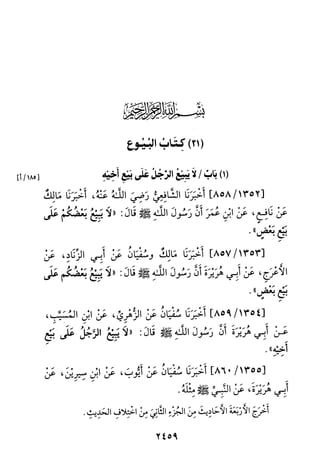 بِسْمِ اللَّهِ الرَّحْمَٰنِ الرَّحِيمِ
(٢١) كِتَابُ الْبُيُوعِ
(١) بَابُ / لَا يَبِيعُ الرَّجُلُ عَلَى بَيْعِ أَخِيْهِ [١٨٥/أ]
[١٣٥٢/ ٨٥٨] أَخْبَرَنَا الشَّافِعِيُّ رَضِيَ اللَّـهُ عَنْهُ، أَخْبَرَنَا مَالِكٌ
عَنْ نَافِـعٍ، عَنْ ابْنِ عُمَرَ أَنَّ رَسُولَ اللَّـهِ ﷺ قَالَ: «لَا يَبِيْعُ بَعْضُكُمْ عَلَى
بَيْعِ بَعْضٍ».
[١٣٥٣/ ٨٥٧] أَخْبَرَنَا مَالِكٌ وسُفْيَانُ عَنْ أَبِـي الزِّنَادِ، عَنْ
الأَعْرَجِ، عَنْ أَبِـي هُرَيْرَةَ أَنَّ رَسُولَ اللَّـهِ ﷺ قَالَ: «لَا يَبِيْعُ بَعْضُكُمْ عَلَى
بَيْعِ بَعْضٍ».
[١٣٥٤/ ٨٥٩] أَخْبَرَنَا سُفْيَانُ عَنْ الزُّهْرِيِّ، عَنْ ابْنِ المُسَيَّبِ،
عَـنْ أَبِـي هُرَيْرَةَ أَنَّ رَسُولَ اللَّـهِ ﷺ قَالَ: «لَا يَبِيْعُ الرَّجُلُ عَلَى بَيْعِ
أَخِيْهِ».
[١٣٥٥/ ٨٦٠] أَخْبَرَنَا سُفْيَانُ عَنْ أَيُّوبَ، عَنْ ابْنِ سِيرِيْنَ، عَنْ
أَبِـي هُرَيْرَةَ، عَنْ النَّبِـيِّ ﷺ مِثْلَهُ.
أَخْرَجَ الأَرْبَعَةَ الأَحَادِيثَ مِنَ الجُزْءِ الثَّانِيَ مِنْ اخْتِلَافِ الحَدِيثِ.
٢٤٥٩